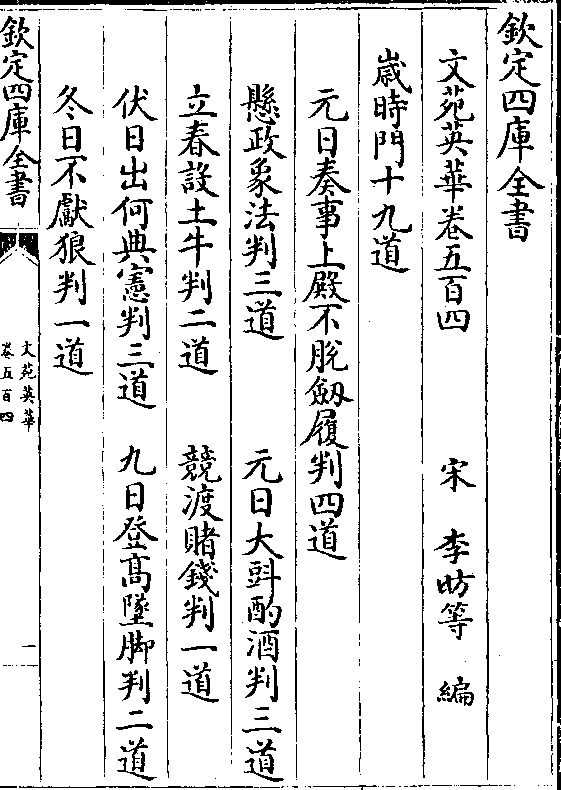 欽定四庫全書
文苑英華卷五百四
宋 李昉等 編
歳時門十九道
元日奏事上殿不脫劔履判四道
懸政象法判三道 元日大㪷酌酒判三道
立春設土牛判二道 競渡賭錢判一道
伏日出何典憲判三道 九日登髙墜脚判二道
冬日不獻狼判一道
欽定四庫全書
文苑英華
卷五百四
一